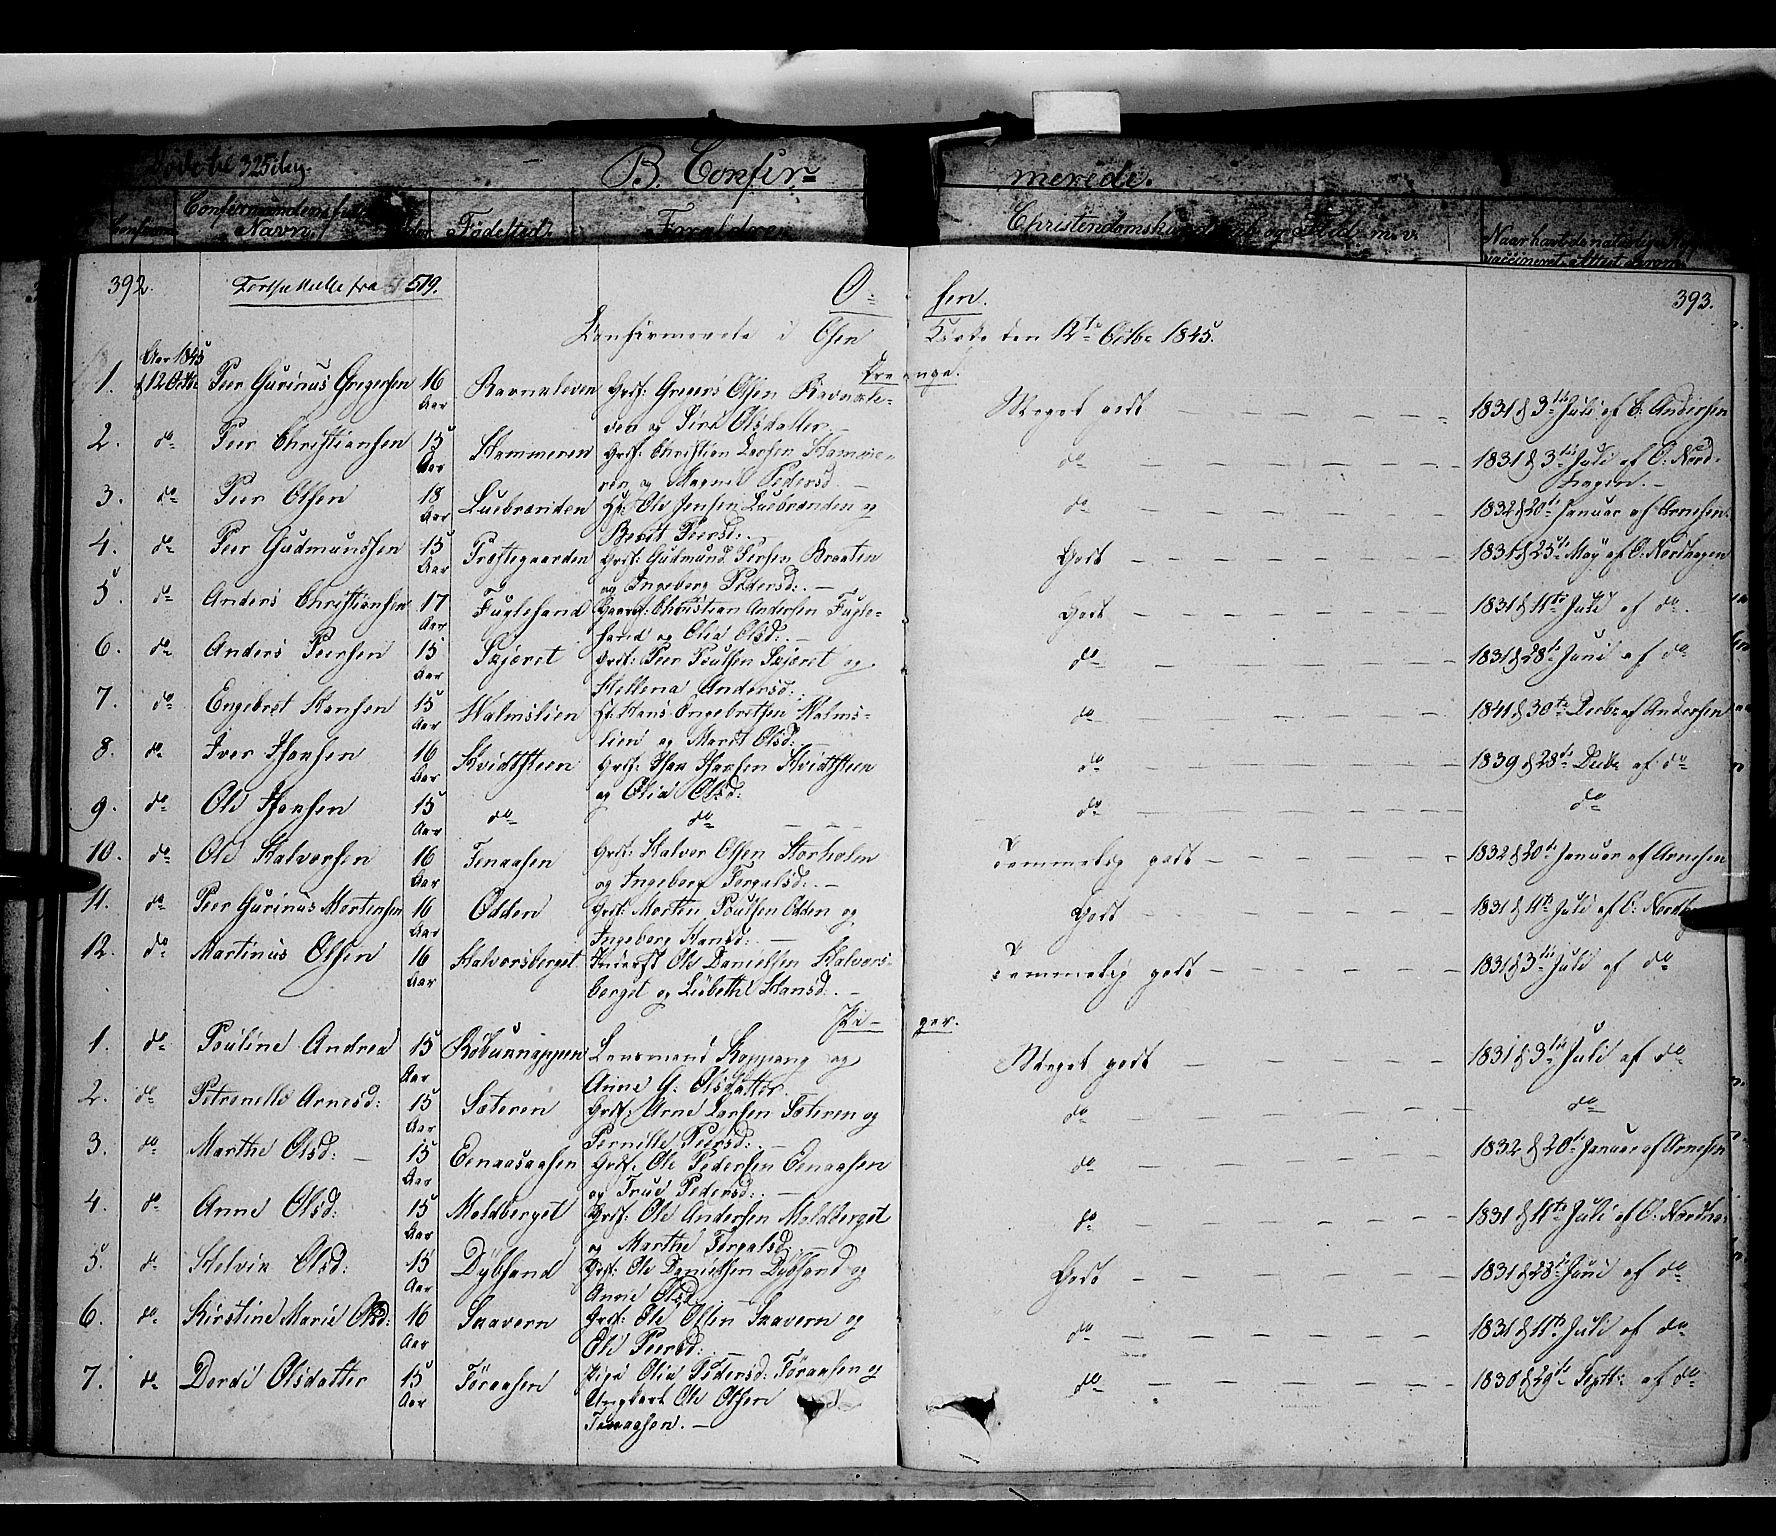 325
B. Confir=
merede.
Confirmandens
Navn.
Fødested.
Forældre.
Christendomskundskab og Flid m. v.
Naar havt de naturlige
vaccineret. Attest derom.
392.
Fortsættelse fra 519.
O=
sen.
393.
Confirmerede i Osen
Kirke den 12te Octbr 1845.
Aar 1845
Drenge.
1. d 12 Octbr Peer Gurinus Gregersen 16 Aar Ravnaleven Grdf: Greers Olsen Ravnale= Meget godt 1831 d 3die Juli af C: Andersen
den og Siri Olsdatter. —
2. do Peer Christiansen 15 Aar Hammeren Grdf: Christian Larsen Hamme= do 1831 d 3die Juli af O: Nord=
ren og Magnil Pedersd. — hagen. —
3. do Peer Olsen 18 Aar Luebrænden Ole Jensen Luebrænden og do 1832 d 20de Januar af Arnesen.
Berit Peersd:.
4. do Peer Gudmundsen 15 Aar Prestegaarden Grdf: Gudmund Persen Braaten Godt 1831 d 25de May af O: Nordhagen
og Ingeberg Pedersd: —
5. do Anders Christiansen 17 Aar Fuglesand Christian Andersen Fugle= Godt 1831 d 11te Juli af do
sand og Olia Olsd: —
6. do Anders Peersen 15 Aar Skjæret Grdf: Peer Poulsen Skjæret og do 1831 d 28de Juni af do
Hellena Andersd:.
7. do Engebret Hansen 15 Aar Malmstien Hans Engebretsen Malms= do 1841 d 30te Decbr af Andersen
tien og Marit Olsd: —
8. do Iver Hansen 16 Aar Kvidtsteen Grdf: Hans Hansen Kvidtsteen do 1839 d 28de Decbr af do
og Olia Olsd:
9. do Ole Hansen 15 Aar do do do do
10. do Ole Halvorsen 16 Aar Tenaasen Grdf: Halvor Olsen Storholm Temmelig godt 1832 d 20de Januar af Arnesen
og Ingeberg Torgalsd:. —
11. do Peer Gurinus Mortensen 16 Aar Odden Grdf: Morten Poulsen Odden og Godt 1831 d 11te Juli af O: Nordhagen
Ingeberg Hansd: —
12. do Martinus Olsen 16 Aar Halvorsberget Ole Danielsen Halvors= Temmelig godt 1831 d 3die Juli af do
berget og Lisbethe Hansd. —
Pi=
ger.
1. do Pouline Andrea 15 Aar Lensmand Koppang og Meget godt 1831 d 3die Juli af do
Anne G: Olsdatter.
2. do Petronelle Arnesd: 15 Aar Sæteren Grdf: Arne Larsen Sæteren og do do
Pernille Peersd: —
3. do Marthe Olsd: — 15 Aar Eenaasaasen Grdf: Ole Pedersen Eenaasen do 1832 d 20de Januar af Arnesen
og True Pedersd:. —
4. do Anne Olsd: 15 Aar Moldberget Grdf: Ole Andersen Moldberget do 1831 d 11te Juli af O: Nordha=
og Marthe Torgalsd. —
5. do Helvia Olsd: 15 Aar Dybsand Grdf: Ole Danielsen Dybsand og Godt 1831 d 28de Juni af do
Anne Olsd: —
6. do Kirstine Marie Olsd: 16 Aar Snavern Grdf: Ole Olsen Snavern og do 1831 d 11te Juli af do
Oli Peersd: —
7. do Dordi Olsdatter 15 Aar Føraasen Pige Olia Pedersd: Føraasen og do 1830 d 29de Septbr af do
Ungkarl Ole Olsen
Tenaasen. —